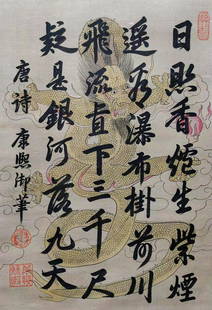 日照香炉生紫煙
遥看瀑布掛前川
飛流直下三千尺
疑是銀河落九天
唐詩 康熙御筆